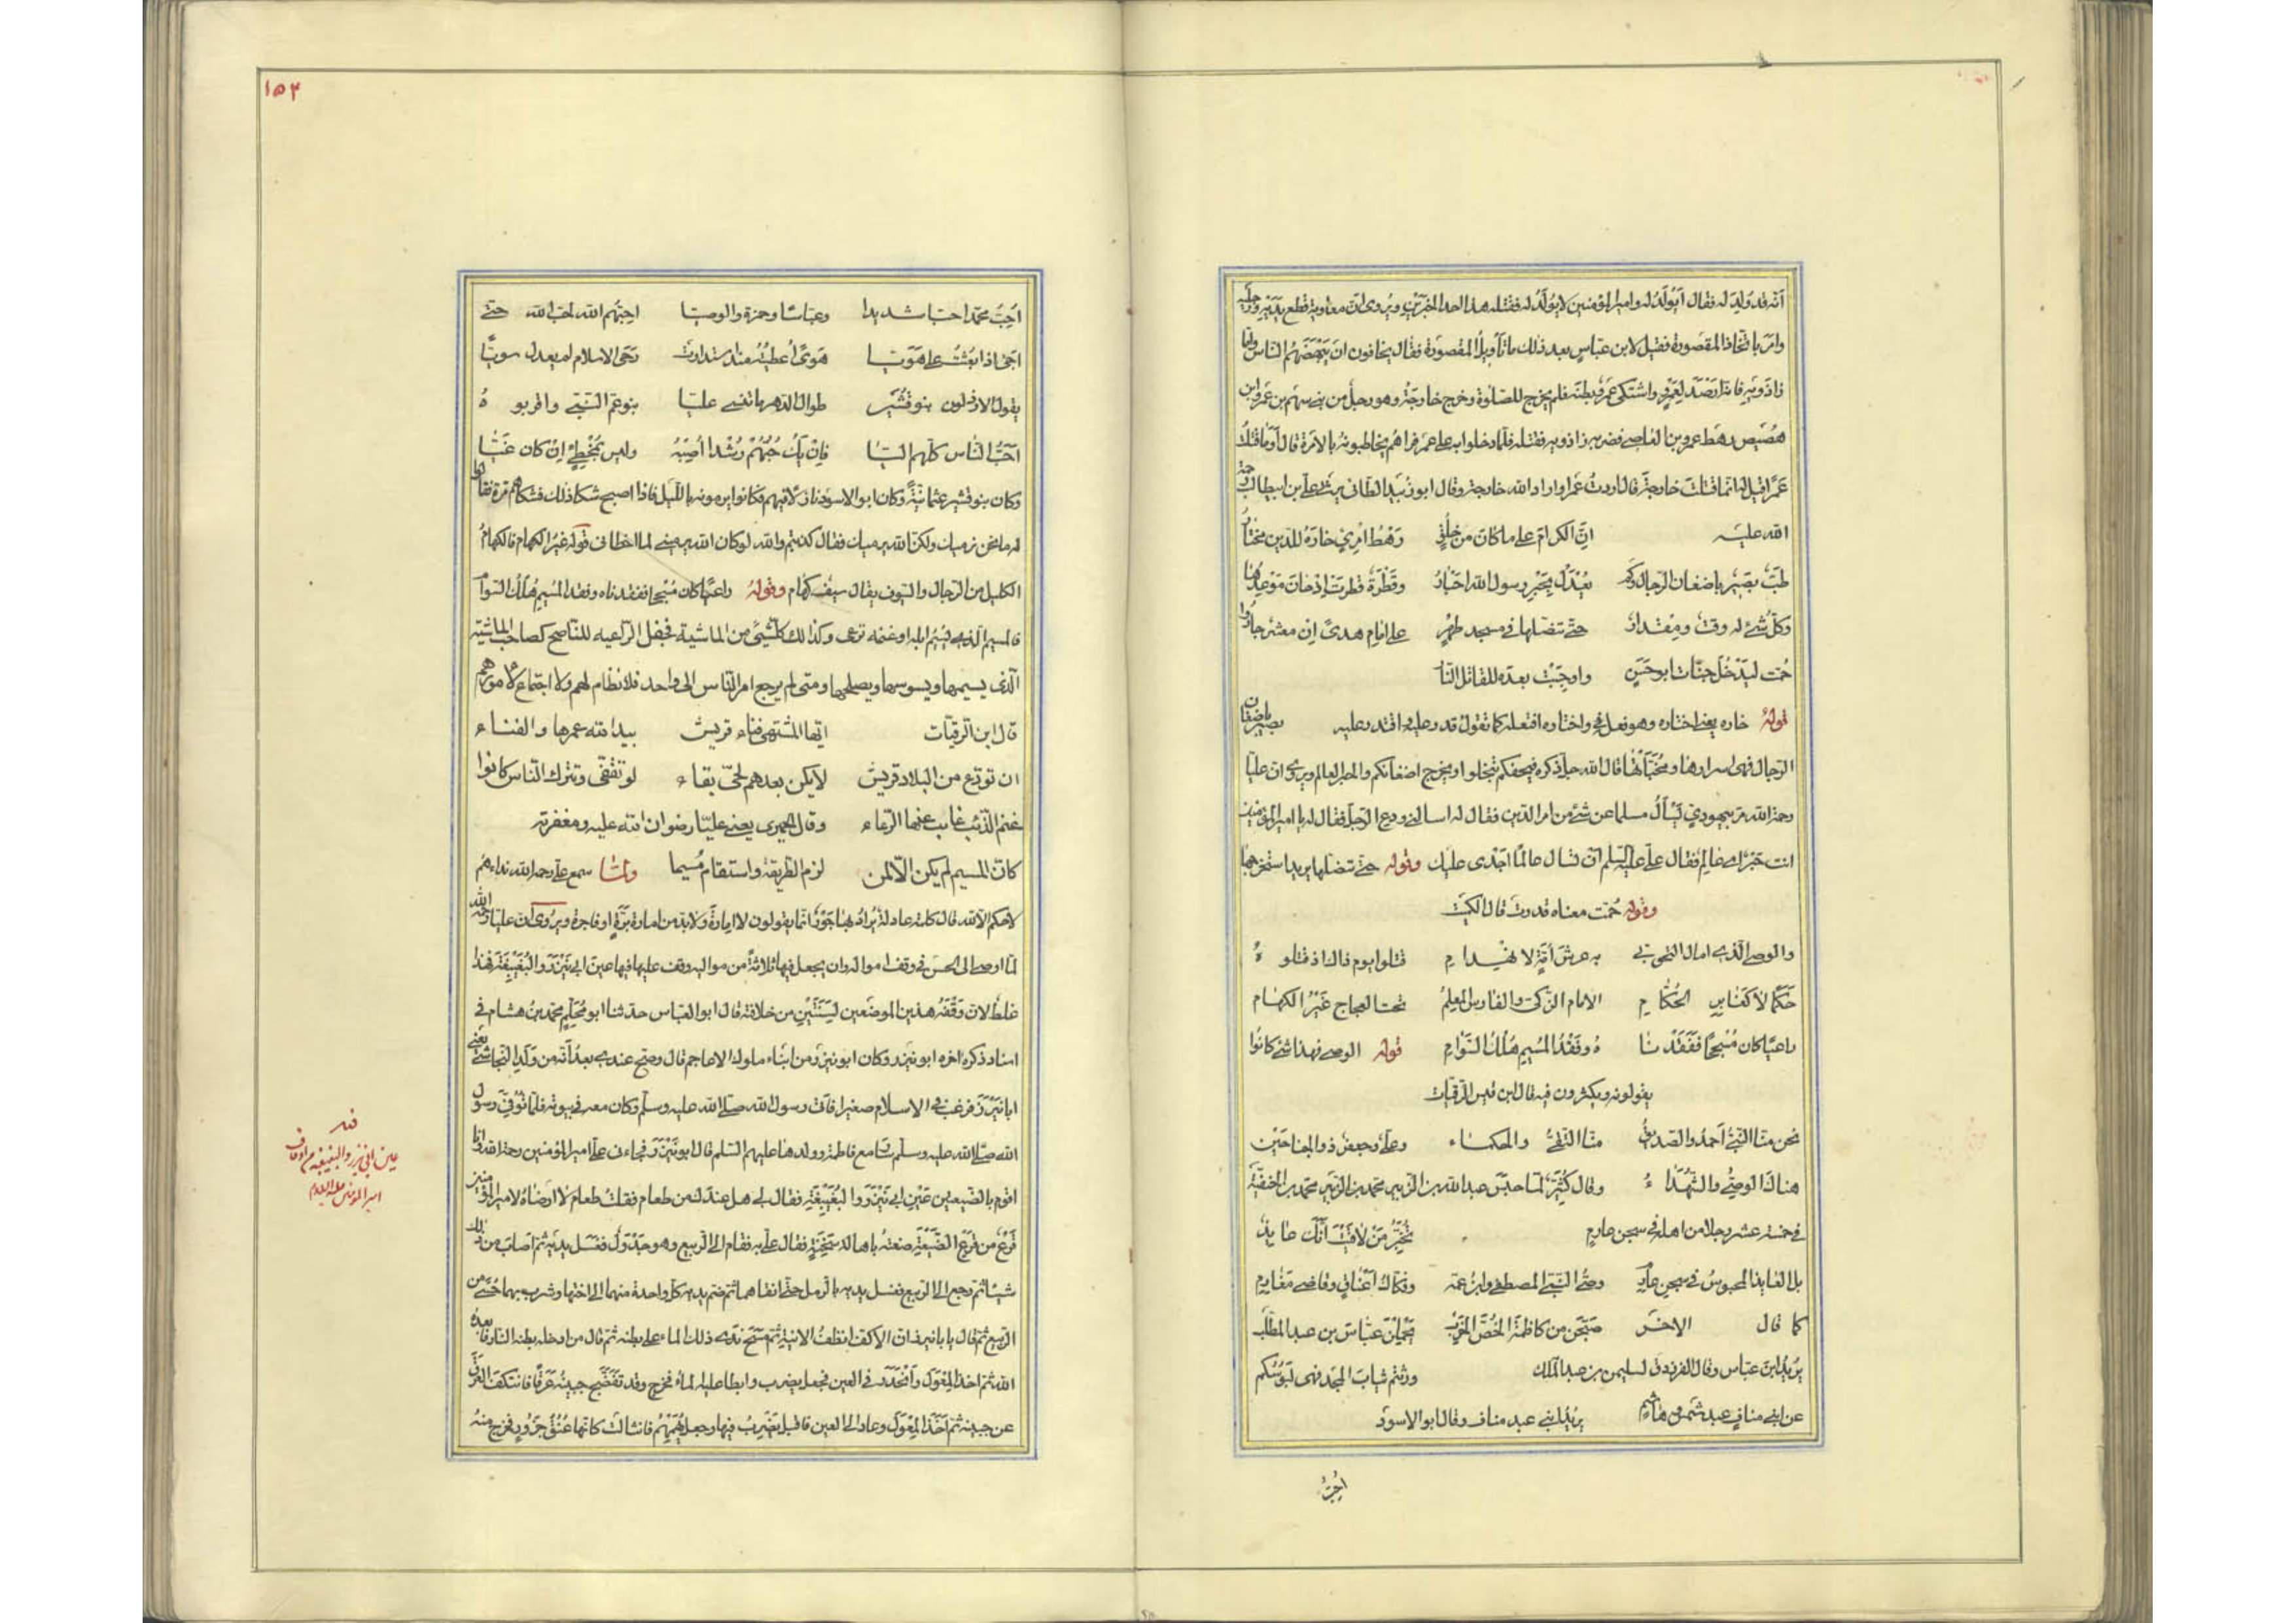 انّه قد ولد له فقال أيُولَدُ له وامير المؤمنين لا يُولَدُ له فقتله هذا احد الخبرين ويُروى انّ معاوية قطع يديه ورجليه
وامر باتّخاذ المقصورة فقيل لابن عباس بعد ذلك ما تأويل المقصورة فقال يخافون ان يَبْهَضَهُم الناس وامّا
زاذويه فانّه ارصد لعمرو واشتكى عمرو بطنه فلم يخرج للصلوة وخرج خارجة وهو رجل من بني سهم بن عمرو ابن
هُصَيص رهط عمرو بن العاصي فضربه زاذويه فقتله فلمّا دخلوا به على عمرو فراهم يخاطبونه بالامرة قال أوما قتلتُ
عمرًا قيل له انما قتلتَ خارجة قال اردتُ عمرا واراد الله خارجة وقال ابو زُبَيد الطائي يرثي علي بن ابيطالب رحمة
الله عليه انّ الكرام على ما كان من خُلُقٍ رَهْطُ امرِئٍ خارَهُ للدّين مختارُ
طَبٌّ بصيرٌ باضغان الرجال ولم يُعْدَلْ بحبْرِ رسول الله احبارُ وقَطْرَةٌ قطرت إذ حانَ مَوْعِدُها
وكلّ شئ له وقتٌ ومقدارُ حتّى تنصّلها في مسجد طُهْرٍ على امام هدىً اِنْ معشر جارُوا
حُمّت ليَدْخُلَ جنّاتٍ ابو حَسَنٍ واُوجِبَتْ بعده للقاتل النارُ
قوله خاره يعني اختاره وهو فعله واختاره افتعله كما تقول قدر عليه واقتدر عليه بصير باضغان
الرجال فهي اسرارها ومُخَبّآتُها قال الله جل ذكره فيحفكم تبخلوا ويخرج اضغانكم والحبر العالم ويروى انّ عليّا
رحمه الله مرّ بيهوديّ يَسألُ مسلما عن شئ من امر الدين فقال له اسألني ودع الرجل فقال له يا امير المؤمنين
انت حَبْرٌ اي عالم فقال علي عليه السلم أن تسأل عالمًا اجدى عليك وقوله حتى تنصّلها يريد استخرجها
وقوله حُمّت معناه قدرت قال الكميت
والوصي الذي امال التجوبي به عرش أمّةٍ لانهدام قتلوا يوم ذاك اذ قتلوه
حَكَمًا لا كغابر الحُكّام الامام الزكيّ والفارس المعلمُ تحت العجاج غيرُ الكهام
راعيًا كان مُسْجِحًا ففَقَدْناه وفَقْدُ المُسيمِ هُلْكُ السَّوام قوله الوصي فهذا شئ كانوا
يقولونه ويكثرون فيه قال ابن قيس الرقيات
نحن منّا النبيُّ أحمدُ والصديقُ منّا التقيُّ والحكماء وعليٌّ وجعفرٌ ذو الجناحين
هناك الوصيُّ والشهداءُ وقال كُثَيّر لمّا حبس عبد الله بن الزبير محمد بن الحنفية
في خمسة عشر رجلا من اهله في سجن عارم تُخَبِّرُ مَنْ لاقيتَ انّك عائذٌ
بل العائذ المحبوسُ في سجن عارم وصيُّ النبيّ المصطفى وابنُ عمّه وفكّاكُ أغناقٍ وقاضي مغارم
كما قال الاخر صبّحن من كاظمة الخُصَّ الخَرِبْ يَحْمِلْنَ عبّاسَ بن عبد المطّلب
يُريدُ ابنَ عباس وقال الفرزدق لسليمن بن عبد الملك ورثتم ثيابَ المجد فهي لبوسُكم
عن ابني منافٍ عبد شمسٍ وهاشمٍ يريد ابني عبد مناف وقال ابو الاسود
أُحِبُّ
١٥٣
أُحِبُّ محمّدا حبّا شديدا وعبّاسًا وحمزة والوصيّا احبّهم لله لحبّ الله حتى
اجئ اذا بُعثتُ على هَوَيّا هوىً أُعطيتُهُ منذ استدارت رَحَى الاسلام لم يعدل سويّا
يقول الارذلون بنو قُشَيرٍ طوال الدهر ما تنسى عليّا بنو عمّ النبيّ واقربوهُ
أحَبُّ الناس كلّهم اليّا فاِنْ يَكُ حُبُّهُمْ رُشْدًا أُصِبْهُ وليس بمُخْطِئٍ اِنْ كان غَيّا
وكان بنو قشير عثمانيّةً وكان ابو الاسود نازلا فيهم فكانوا يرمونه بالليل فاذا اصبح شكا ذلك فشكاهم مرة فقالوا
له ما نحن نرميك ولكن الله يرميك فقال كذبتم والله لو كان الله يرميني لما اخطاني قوله غير الكهام فالكهامُ
الكليل من الرجال والسيوف يقال سيف كَهام وقولُهُ راعيًا كان مُسْجِحا ففقدناه وفقد المُسيم هُلْكُ السَّوام
فالمسيم الذي يُسيم ابله او غنمه ترعى وكذلك كلّ شئٍ من الماشية فجعل الراعي للناس كصاحب الماشية
الذي يسيمها ويسوسها ويصلحها ومتى لم يرجع امر الناس الى واحد فلا نظام لهم ولا اجتماع لامورهم
قال ابن الرقيات ايّها المشتهي فناء قريش بيد الله عمرها والفناء
ان تودّع من البلاد قريش لا يكن بعدهم لحيّ بقاء لو تقفّى وتترك الناس كانوا
غنم الذئب غاب عنها الرعاء وقال الحميري يعني عليّا رضوان الله عليه ومغفرته
كان المسيم ولم يكن الّا لمن لزم الطريقة واستقام مُسيما ولمّا سمع علي رحمه الله نداءهم
لا حكم الّا لله قال كلمة عادلة يُراد بها جَوْرٌ انما يقولون لا امارة ولا بد من امارة بَرّةٍ او فاجرة ويُروى انّ عليّا رحمه الله
لما اوصى الى الحسن في وقف امواله وان يجعل فيها ثلاثةً من مواليه وقف عليها فيها عين ابي نَيْزَر والبُغَيْبِغة فهذا
غلط لانّ وَقْفَه هذين الموضعين لسنتين من خلافته قال ابو العباس حدثنا ابو مُحَلِّم محمد بن هشام في
اسناد ذكره اخره ابو نيزر وكان ابو نيزر من ابناء ملوك الاعاجم قال وصحّ عندي بعدُ أنّه من وَلَد النجاشي يعني
ابا نَيْزَر فرغب في الاسلام صغيرا فاتى رسول الله صلى الله عليه وسلم وكان معه في بيوته فلما تُوُفّيَ رسول
الله صلى الله عليه وسلم صار مع فاطمة وولدها عليهم السلم قال ابو نَيْزَر جاءني علي امير المؤمنين رحمه الله وانا
اقوم بالضيعتين عين ابي نَيْزَر والبُغَيْبِغة فقال لي هل عندك من طعام فقلتُ طعام لا ارضاهُ لامير المؤمنين
قَرْعٌ من قَرْع الضيعة صنعتُه باهالة سَنِخةٍ فقال عليّ به فقام الى الربيع وهو جَدْوَل فغسل يديه ثم اصاب من ذلك
شيئا ثم رجع الى الربيع فغسل يديه بالرمل حتى انقاهما ثم ضم يديه كل واحدة منهما الى اختها وشرب بهما حُسًى من
الربيع ثم قال يا با نيزر انّ الاكفّ انظفُ الانية ثم مَسَحَ ندى ذلك الماء على بطنه ثم قال من ادخله بطنه النار فابعده
الله ثم اخذ المِعْوَل وانْحَدَر في العين فجعل يضرب وابطا عليه الماء فخرج وقد تَفَضّج جبينه عرقًا فانتكف العرق
عن جبينه ثم أخذ المِعْوَل وعاد الى العين فاقبل يَضْرِبُ فيها وجعل يُهَمْهِمُ فانثالت كانّها عُنُقُ جَزُورٍ فخرج منه
عين ابي نيزر والبغيبغة من اوقاف
امير المؤمنين عليه السلام